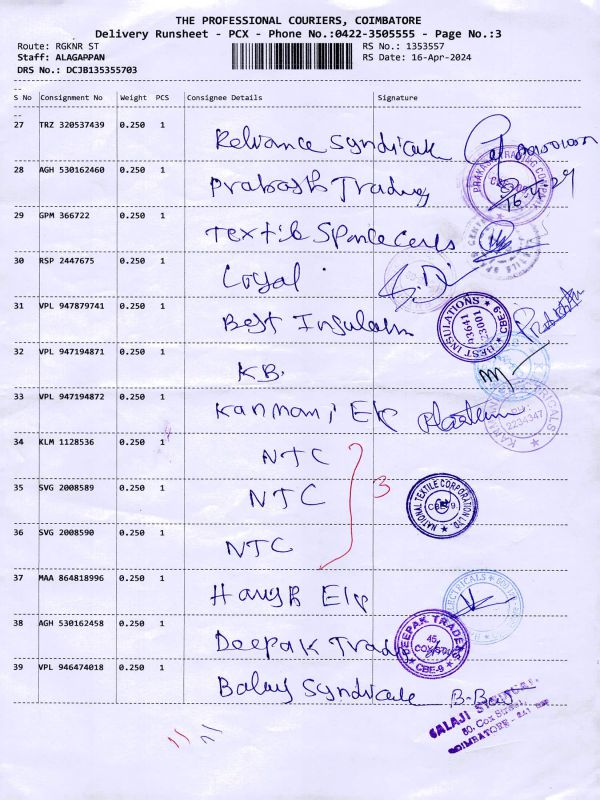 THE PROFESSIONAL COURIERS, COIMBATORE
Delivery Runsheet - PCX - Phone No.:0422-3505555 - Page No.:3
Route: RGKNR ST RS No.: 1353557
Staff: ALAGAPPAN RS Date: 16-Apr-2024
DRS No.: DCJB135355703
S No Consignment No Weight PCS Consignee Details Signature
27 TRZ 320537439 0.250 1 Reliance Syndicate
28 AGH 530162460 0.250 1 Prakash Trading
PRAKASH TRADING COMPANY
29 GPM 366722 0.250 1 Textile
30 RSP 2447675 0.250 1 Loyal
31 VPL 947879741 0.250 1 Best Insulation
BEST INSULATIONS CBE-9 23001 43641
32 VPL 947194871 0.250 1 KB.
33 VPL 947194872 0.250 1 Kanmani Ele
2234347
34 KLM 1128536 0.250 1 NTC
35 SVG 2008589 0.250 1 NTC 3
NATIONAL TEXTILE CORPORATION LTD. CBE-9
36 SVG 2008590 0.250 1 NTC
37 MAA 864818996 0.250 1 Harish Ele
38 AGH 530162458 0.250 1 Deepak Traders
DEEPAK TRADERS 45 COX ST CBE-9
39 VPL 946474018 0.250 1 Balaji Syndicate
BALAJI SYNDICATE
80, Cox Street,
COIMBATORE - 641